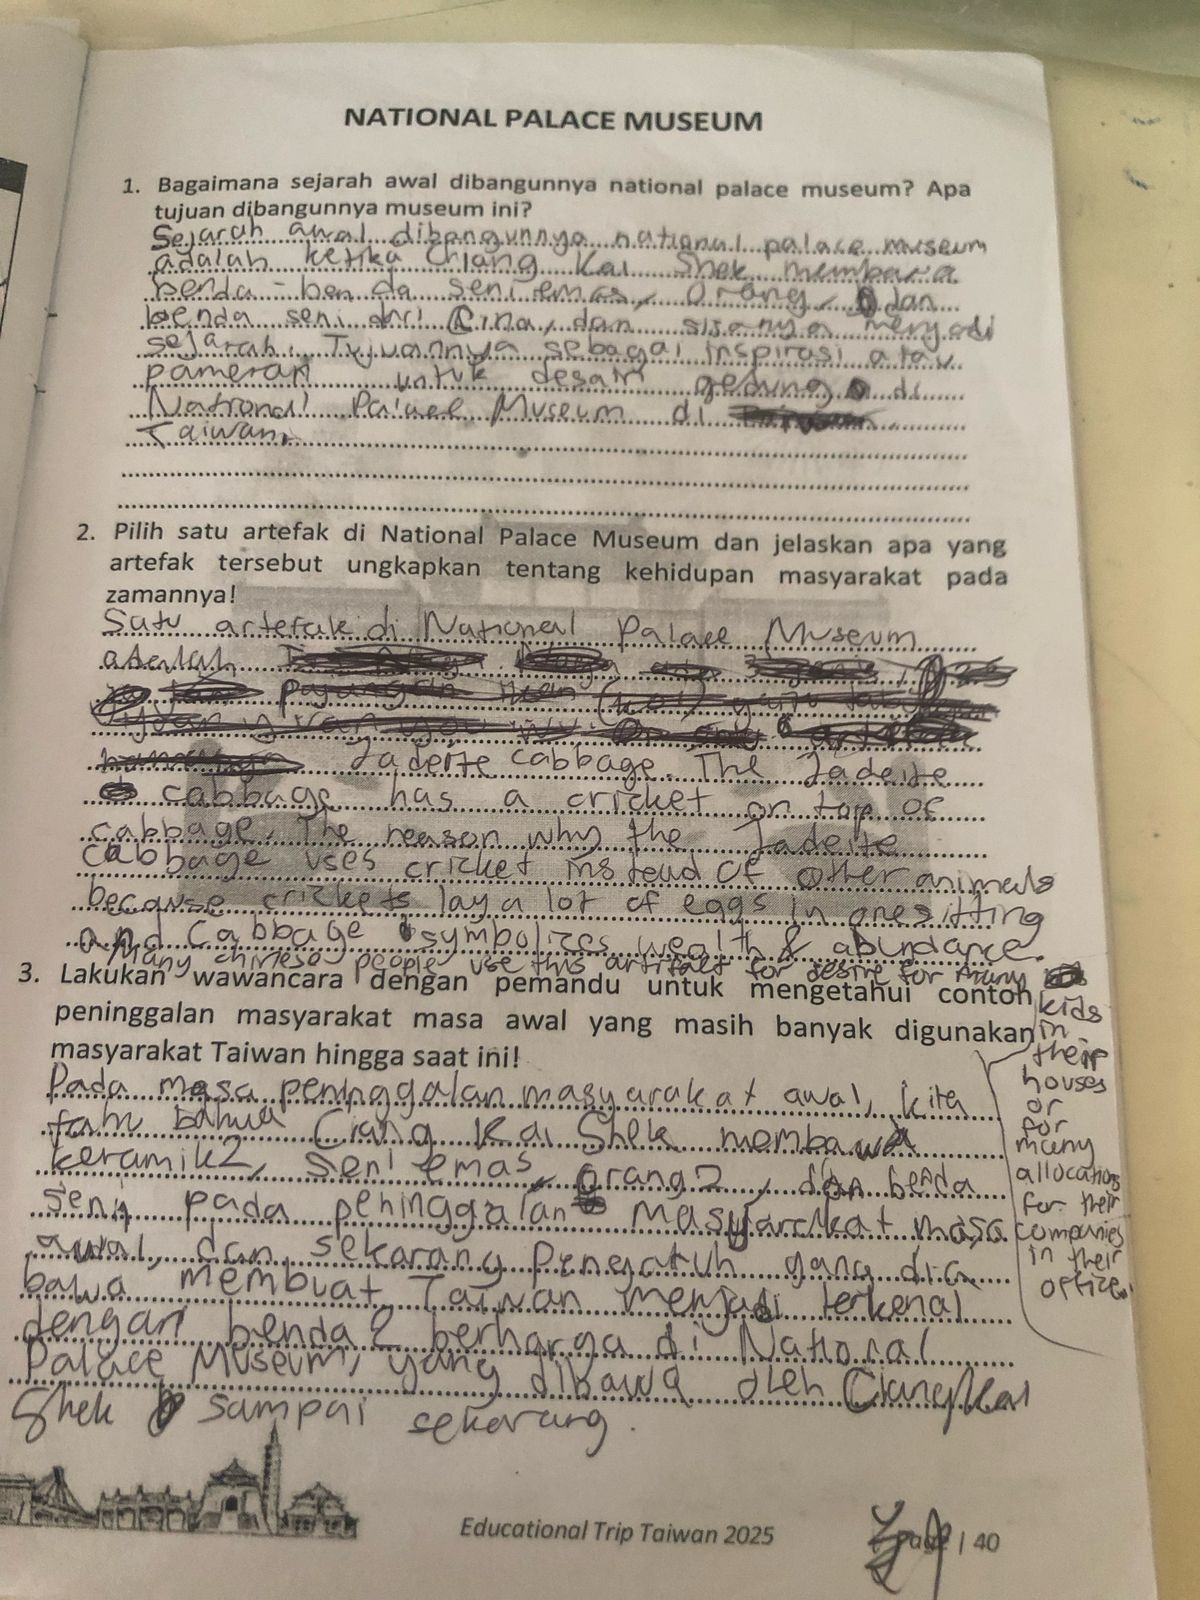 NATIONAL PALACE MUSEUM
1. Bagaimana sejarah awal dibangunnya national palace museum? Apa
tujuan dibangunnya museum ini?
Sejarah awal dibangunnya national palace museum
adalah ketika Chiang Kai Shek membawa
benda-benda seni emas, orang, dan
benda seni dari Cina, dan sisanya menjadi
sejarah. Tujuannya sebagai inspirasi atau
pameran untuk desain gedung di
National Palace Museum di
Taiwan.
2. Pilih satu artefak di National Palace Museum dan jelaskan apa yang
artefak tersebut ungkapkan tentang kehidupan masyarakat pada
zamannya!
Satu artefak di National Palace Museum
adalah
Jadeite cabbage. The Jadeite
cabbage has a cricket on top of
cabbage. The reason why the Jadeite
cabbage uses cricket instead of other animals
because crickets lay a lot of eggs in one sitting
and Cabbage symbolizes wealth & abundance.
Many chinese people use this artifact for desire for many
kids
in
their
houses
or
for
many
allocations
for their
companies
in their
office.
3. Lakukan wawancara dengan pemandu untuk mengetahui contoh
peninggalan masyarakat masa awal yang masih banyak digunakan
masyarakat Taiwan hingga saat ini!
Pada masa peninggalan masyarakat awal, kita
tahu bahwa Ciang Kai Shek membawa
keramik2, seni emas, orang2, dan benda
seni pada peninggalan masyarakat masa
awal, dan sekarang Pengaruh yang dia
bawa membuat Taiwan menjadi terkenal
dengan benda2 berharga di National
Palace Museum, yang dibawa oleh Ciang Kai
Shek sampai sekarang.
Educational Trip Taiwan 2025
Page | 40